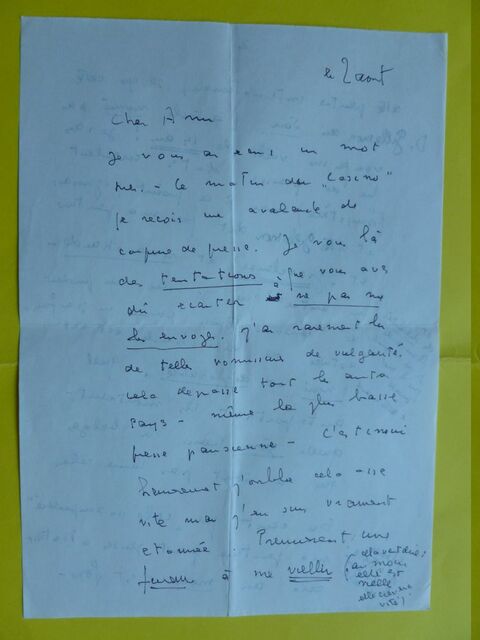 le 2 août
Cher Ami
Je vous ai écrit un mot
hier. - Ce matin du "Casino"
je reçois une avalanche de
coupure de presse. Je vous là
des tentations à que vous avez
dû écarter ne pas me
les envoyer. J'ai rarement lu
de telle vomissure de vulgarité.
cela dépasse tout les autres
Pays - même la plus basse
presse parisienne - C'est inouï
heureusement j'oublie cela assez
vite mais j'en suis vraiment
étonnée.
à me vieillir
(au moins
elle est
réelle
vite!